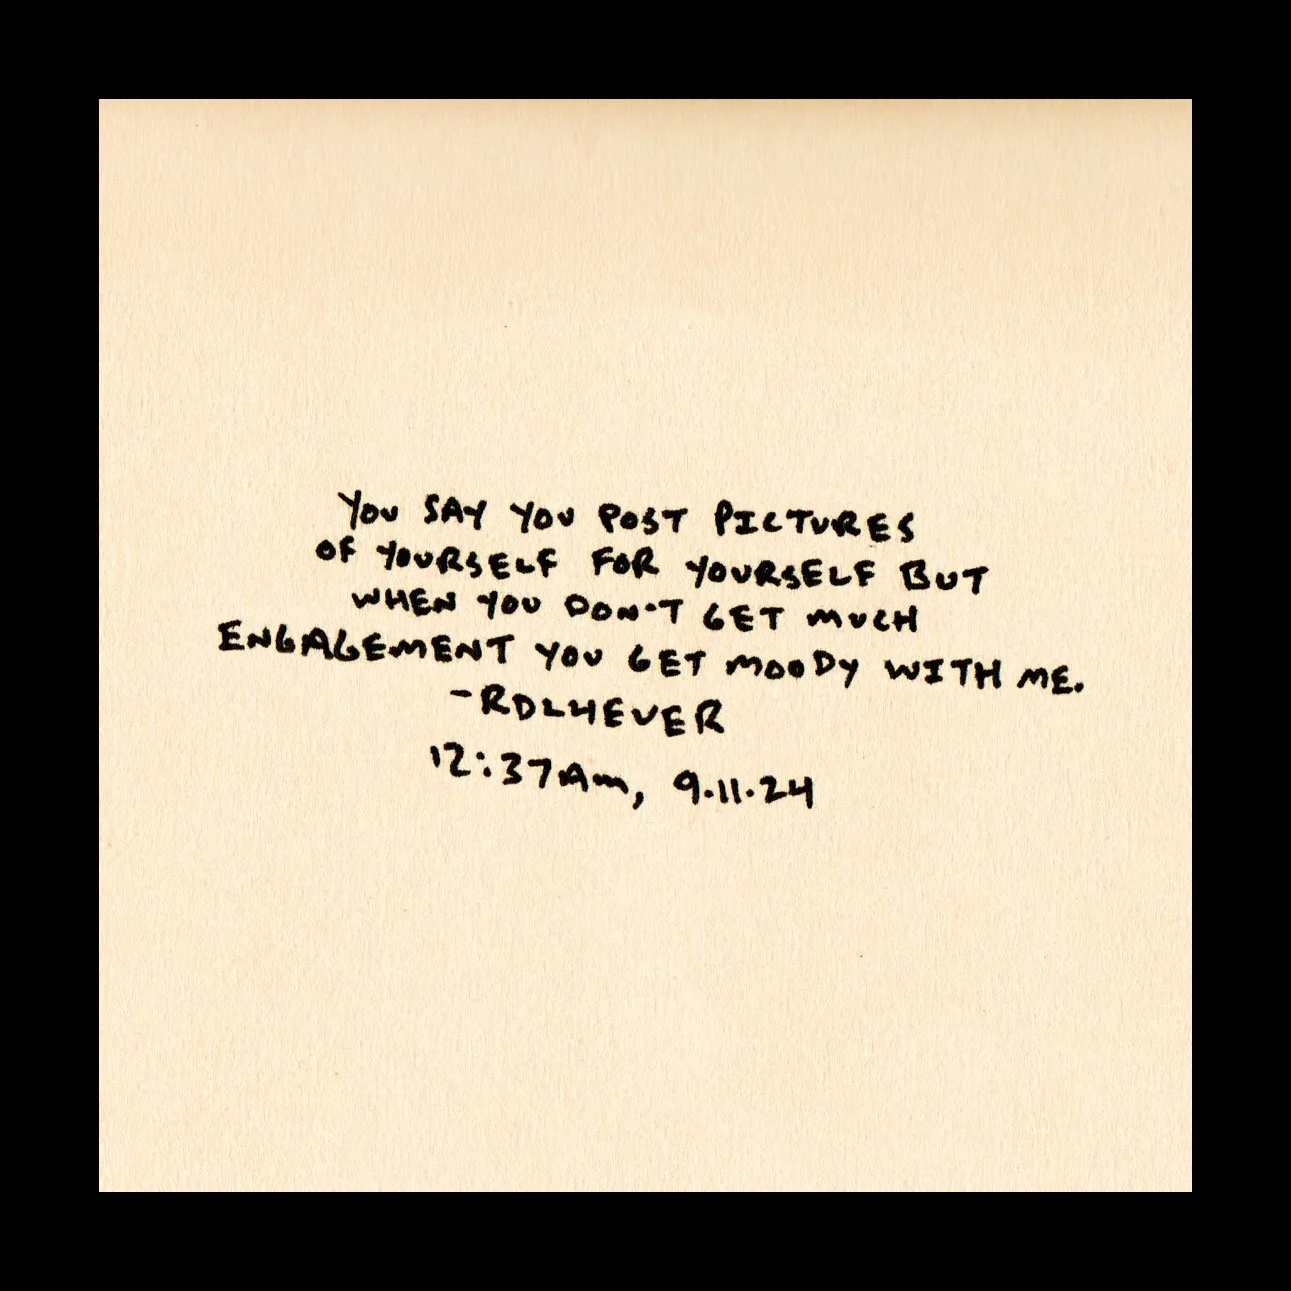 YOU SAY YOU POST PICTURES
OF YOURSELF FOR YOURSELF BUT
WHEN YOU DON'T GET MUCH
ENGAGEMENT YOU GET MOODY WITH ME.
-RDL4EVER
12:37AM, 9.11.24